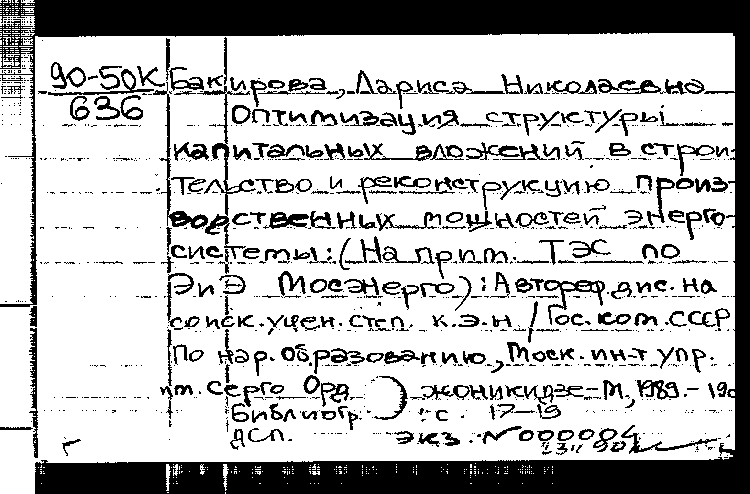 90-50К Бакирова, Лариса Николаевна
636 Оптимизация структуры
капитальных вложений в строи-
тельство и реконструкцию произ-
водственных мощностей энерго-
системы: (На прим. ТЭС по
ЭиЭ Мосэнерго): Автореф. дис. на
соиск. учен. степ. к.э.н / Гос. ком. СССР
по нар. образованию, Моск. ин-т упр.
им. Серго Орджоникидзе - М, 1989. - 19с
Библиогр.: с. 17-19
ДСП. экз. № 000004